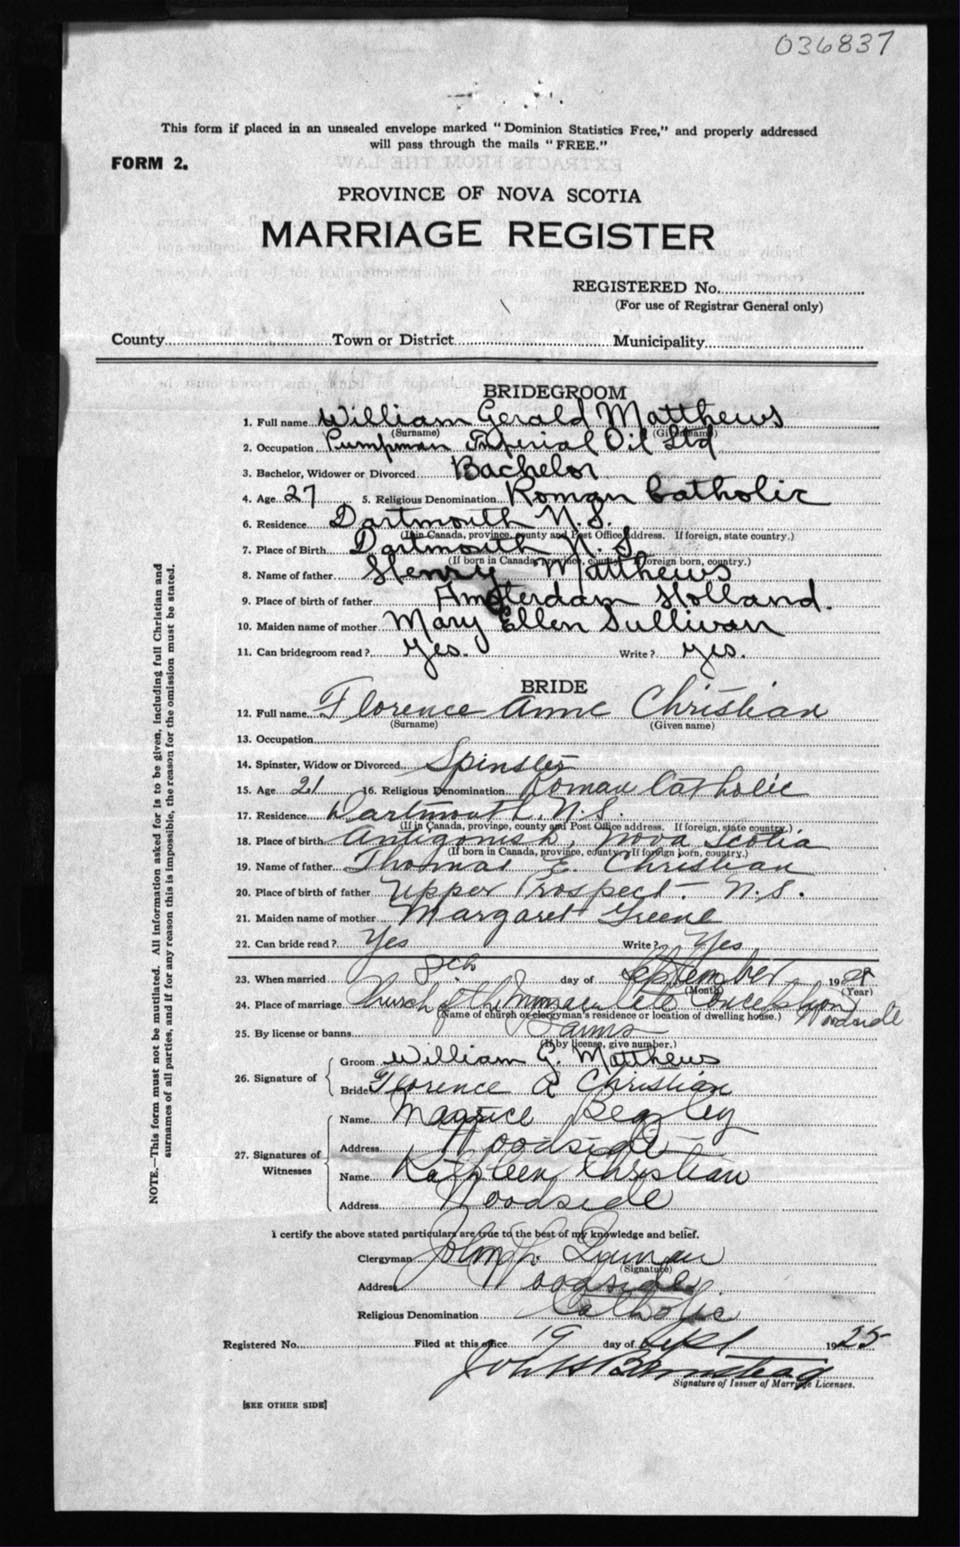 036837
This form if placed in an unsealed envelope marked "Dominion Statistics Free," and properly addressed
will pass through the mails "FREE."
FORM 2.
PROVINCE OF NOVA SCOTIA
MARRIAGE REGISTER
REGISTERED No.
(For use of Registrar General only)
County Town or District Municipality
BRIDEGROOM
1. Full name William Gerald Matthews
(Surname) (Given name)
2. Occupation Pumpman Imperial Oil Ltd
3. Bachelor, Widower or Divorced Bachelor
4. Age 27 5. Religious Denomination Roman Catholic
6. Residence Dartmouth N.S.
(If in Canada, province, county and Post Office address. If foreign, state country.)
7. Place of Birth Dartmouth N.S.
(If born in Canada, province, county. If foreign born, country.)
8. Name of father Henry Matthews
9. Place of birth of father Amsterdam Holland.
10. Maiden name of mother Mary Ellen Sullivan
11. Can bridegroom read? yes. Write? yes.
BRIDE
12. Full name Florence Anne Christian
(Surname) (Given name)
13. Occupation
14. Spinster, Widow or Divorced Spinster
15. Age 21 16. Religious Denomination Roman Catholic
17. Residence Dartmouth, N.S.
(If in Canada, province, county and Post Office address. If foreign, state country.)
18. Place of birth Antigonish, Nova Scotia
(If born in Canada, province, county. If foreign born, country.)
19. Name of father Thomas E. Christian
20. Place of birth of father Upper Prospect - N.S.
21. Maiden name of mother Margaret Greene
22. Can bride read? Yes Write? Yes
23. When married 8th day of September 192
(Month) (Year)
24. Place of marriage Church of the Immaculate Conception Woodside
(Name of church or clergyman's residence or location of dwelling house.)
25. By license or banns Banns
(If by license, give number.)
26. Signature of Groom William G. Matthews
Bride Florence A Christian
27. Signatures of Witnesses
Name Maurice Beazley
Address Woodside
Name Kathleen Christian
Address Woodside
I certify the above stated particulars are true to the best of my knowledge and belief.
Clergyman John
(Signature)
Address Woodside
Religious Denomination Catholic
Registered No. Filed at this office 19 day of Sept 1925
John
Signature of Issuer of Marriage Licenses.
[SEE OTHER SIDE]
NOTE.—This form must not be mutilated. All information asked for is to be given, including full Christian and
surnames of all parties, and if for any reason this is impossible, the reason for the omission must be stated.